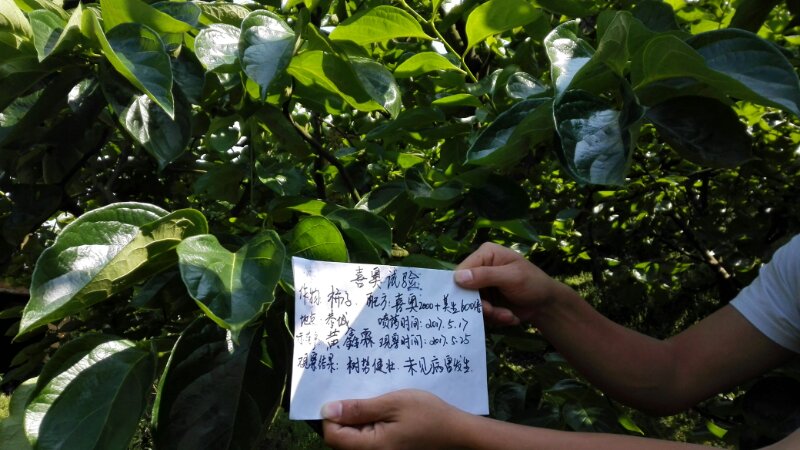 喜奥试验
作物: 柿子. 配方: 喜奥2000+美生6000倍
地点: 恭城 喷药时间: 2017.5.17
黄鑫霖 观察时间: 2017.5.25
观察结果: 树势健壮. 未见病害发生.